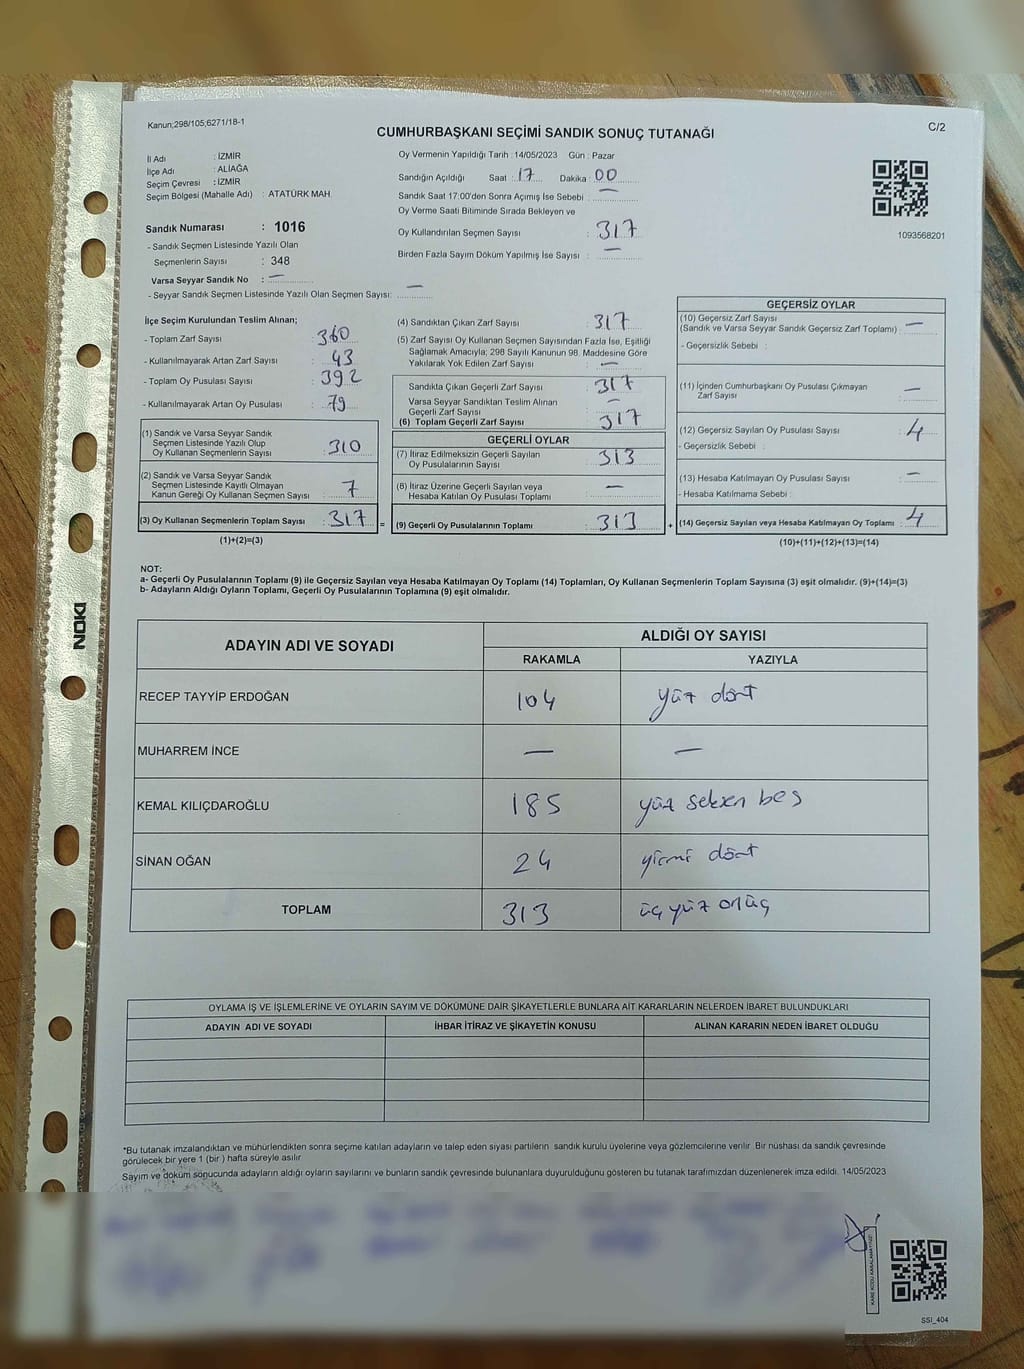 Kanun;298/105,6271/18-1
CUMHURBAŞKANI SEÇİMİ SANDIK SONUÇ TUTANAĞI
C/2
İl Adı : İZMİR
İlçe Adı : ALİAĞA
Seçim Çevresi : İZMİR
Seçim Bölgesi (Mahalle Adı) : ATATÜRK MAH.
Oy Vermenin Yapıldığı Tarih :14/05/2023 Gün : Pazar
Sandığın Açıldığı Saat : 17 Dakika : 00
Sandık Saat 17:00'den Sonra Açımış İse Sebebi : —
Oy Verme Saati Bitiminde Sırada Bekleyen ve
Oy Kullandırılan Seçmen Sayısı : 317
Birden Fazla Sayım Döküm Yapılmış İse Sayısı : —
1093568201
Sandık Numarası : 1016
- Sandık Seçmen Listesinde Yazılı Olan
Seçmenlerin Sayısı : 348
Varsa Seyyar Sandık No : —
- Seyyar Sandık Seçmen Listesinde Yazılı Olan Seçmen Sayısı: —
İlçe Seçim Kurulundan Teslim Alınan;
- Toplam Zarf Sayısı : 360
- Kullanılmayarak Artan Zarf Sayısı : 43
- Toplam Oy Pusulası Sayısı : 392
- Kullanılmayarak Artan Oy Pusulası : 79
(1) Sandık ve Varsa Seyyar Sandık
Seçmen Listesinde Yazılı Olup
Oy Kullanan Seçmenlerin Sayısı : 310
(2) Sandık ve Varsa Seyyar Sandık
Seçmen Listesinde Kayıtlı Olmayan
Kanun Gereği Oy Kullanan Seçmen Sayısı : 7
(3) Oy Kullanan Seçmenlerin Toplam Sayısı : 317 =
(1)+(2)=(3)
(4) Sandıktan Çıkan Zarf Sayısı : 317
(5) Zarf Sayısı Oy Kullanan Seçmen Sayısından Fazla İse, Eşitliği
Sağlamak Amacıyla; 298 Sayılı Kanunun 98. Maddesine Göre
Yakılarak Yok Edilen Zarf Sayısı : —
Sandıkta Çıkan Geçerli Zarf Sayısı : 317
Varsa Seyyar Sandıktan Teslim Alınan
Geçerli Zarf Sayısı : —
(6) Toplam Geçerli Zarf Sayısı : 317
GEÇERLİ OYLAR
(7) İtiraz Edilmeksizin Geçerli Sayılan
Oy Pusulalarının Sayısı : 313
(8) İtiraz Üzerine Geçerli Sayılan veya
Hesaba Katılan Oy Pusulası Toplamı : —
(9) Geçerli Oy Pusulalarının Toplamı : 313 +
GEÇERSİZ OYLAR
(10) Geçersiz Zarf Sayısı
(Sandık ve Varsa Seyyar Sandık Geçersiz Zarf Toplamı) : —
- Geçersizlik Sebebi :
(11) İçinden Cumhurbaşkanı Oy Pusulası Çıkmayan
Zarf Sayısı : —
(12) Geçersiz Sayılan Oy Pusulası Sayısı : 4
- Geçersizlik Sebebi :
(13) Hesaba Katılmayan Oy Pusulası Sayısı : —
- Hesaba Katılmama Sebebi :
(14) Geçersiz Sayılan veya Hesaba Katılmayan Oy Toplamı : 4
(10)+(11)+(12)+(13)=(14)
NOT:
a- Geçerli Oy Pusulalarının Toplamı (9) ile Geçersiz Sayılan veya Hesaba Katılmayan Oy Toplamı (14) Toplamları, Oy Kullanan Seçmenlerin Toplam Sayısına (3) eşit olmalıdır. (9)+(14)=(3)
b- Adayların Aldığı Oyların Toplamı, Geçerli Oy Pusulalarının Toplamına (9) eşit olmalıdır.
NOKI
ADAYIN ADI VE SOYADI ALDIĞI OY SAYISI
RAKAMLA YAZIYLA
RECEP TAYYİP ERDOĞAN 104 yüz dört
MUHARREM İNCE — —
KEMAL KILIÇDAROĞLU 185 yüz seksen beş
SİNAN OĞAN 24 yirmi dört
TOPLAM 313 üç yüz onüç
OYLAMA İŞ VE İŞLEMLERİNE VE OYLARIN SAYIM VE DÖKÜMÜNE DAİR ŞİKAYETLERLE BUNLARA AİT KARARLARIN NELERDEN İBARET BULUNDUKLARI
ADAYIN ADI VE SOYADI İHBAR İTİRAZ VE ŞİKAYETİN KONUSU ALINAN KARARIN NEDEN İBARET OLDUĞU
*Bu tutanak imzalandıktan ve mühürlendikten sonra seçime katılan adayların ve talep eden siyasi partilerin sandık kurulu üyelerine veya gözlemcilerine verilir. Bir nüshası da sandık çevresinde
görülecek bir yere 1 (bir ) hafta süreyle asılır.
Sayım ve döküm sonucunda adayların aldığı oyların sayılarını ve bunların sandık çevresinde bulunanlara duyurulduğunu gösteren bu tutanak tarafımızdan düzenlenerek imza edildi. 14/05/2023
KARE KODU KARALAMAYINIZ!
SSI_404